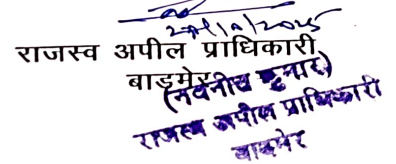 राजस्व अपील प्राधिकारी
बाडमेर
(नवनीत कुमार)
राजस्व अपील प्राधिकारी
बाडमेर